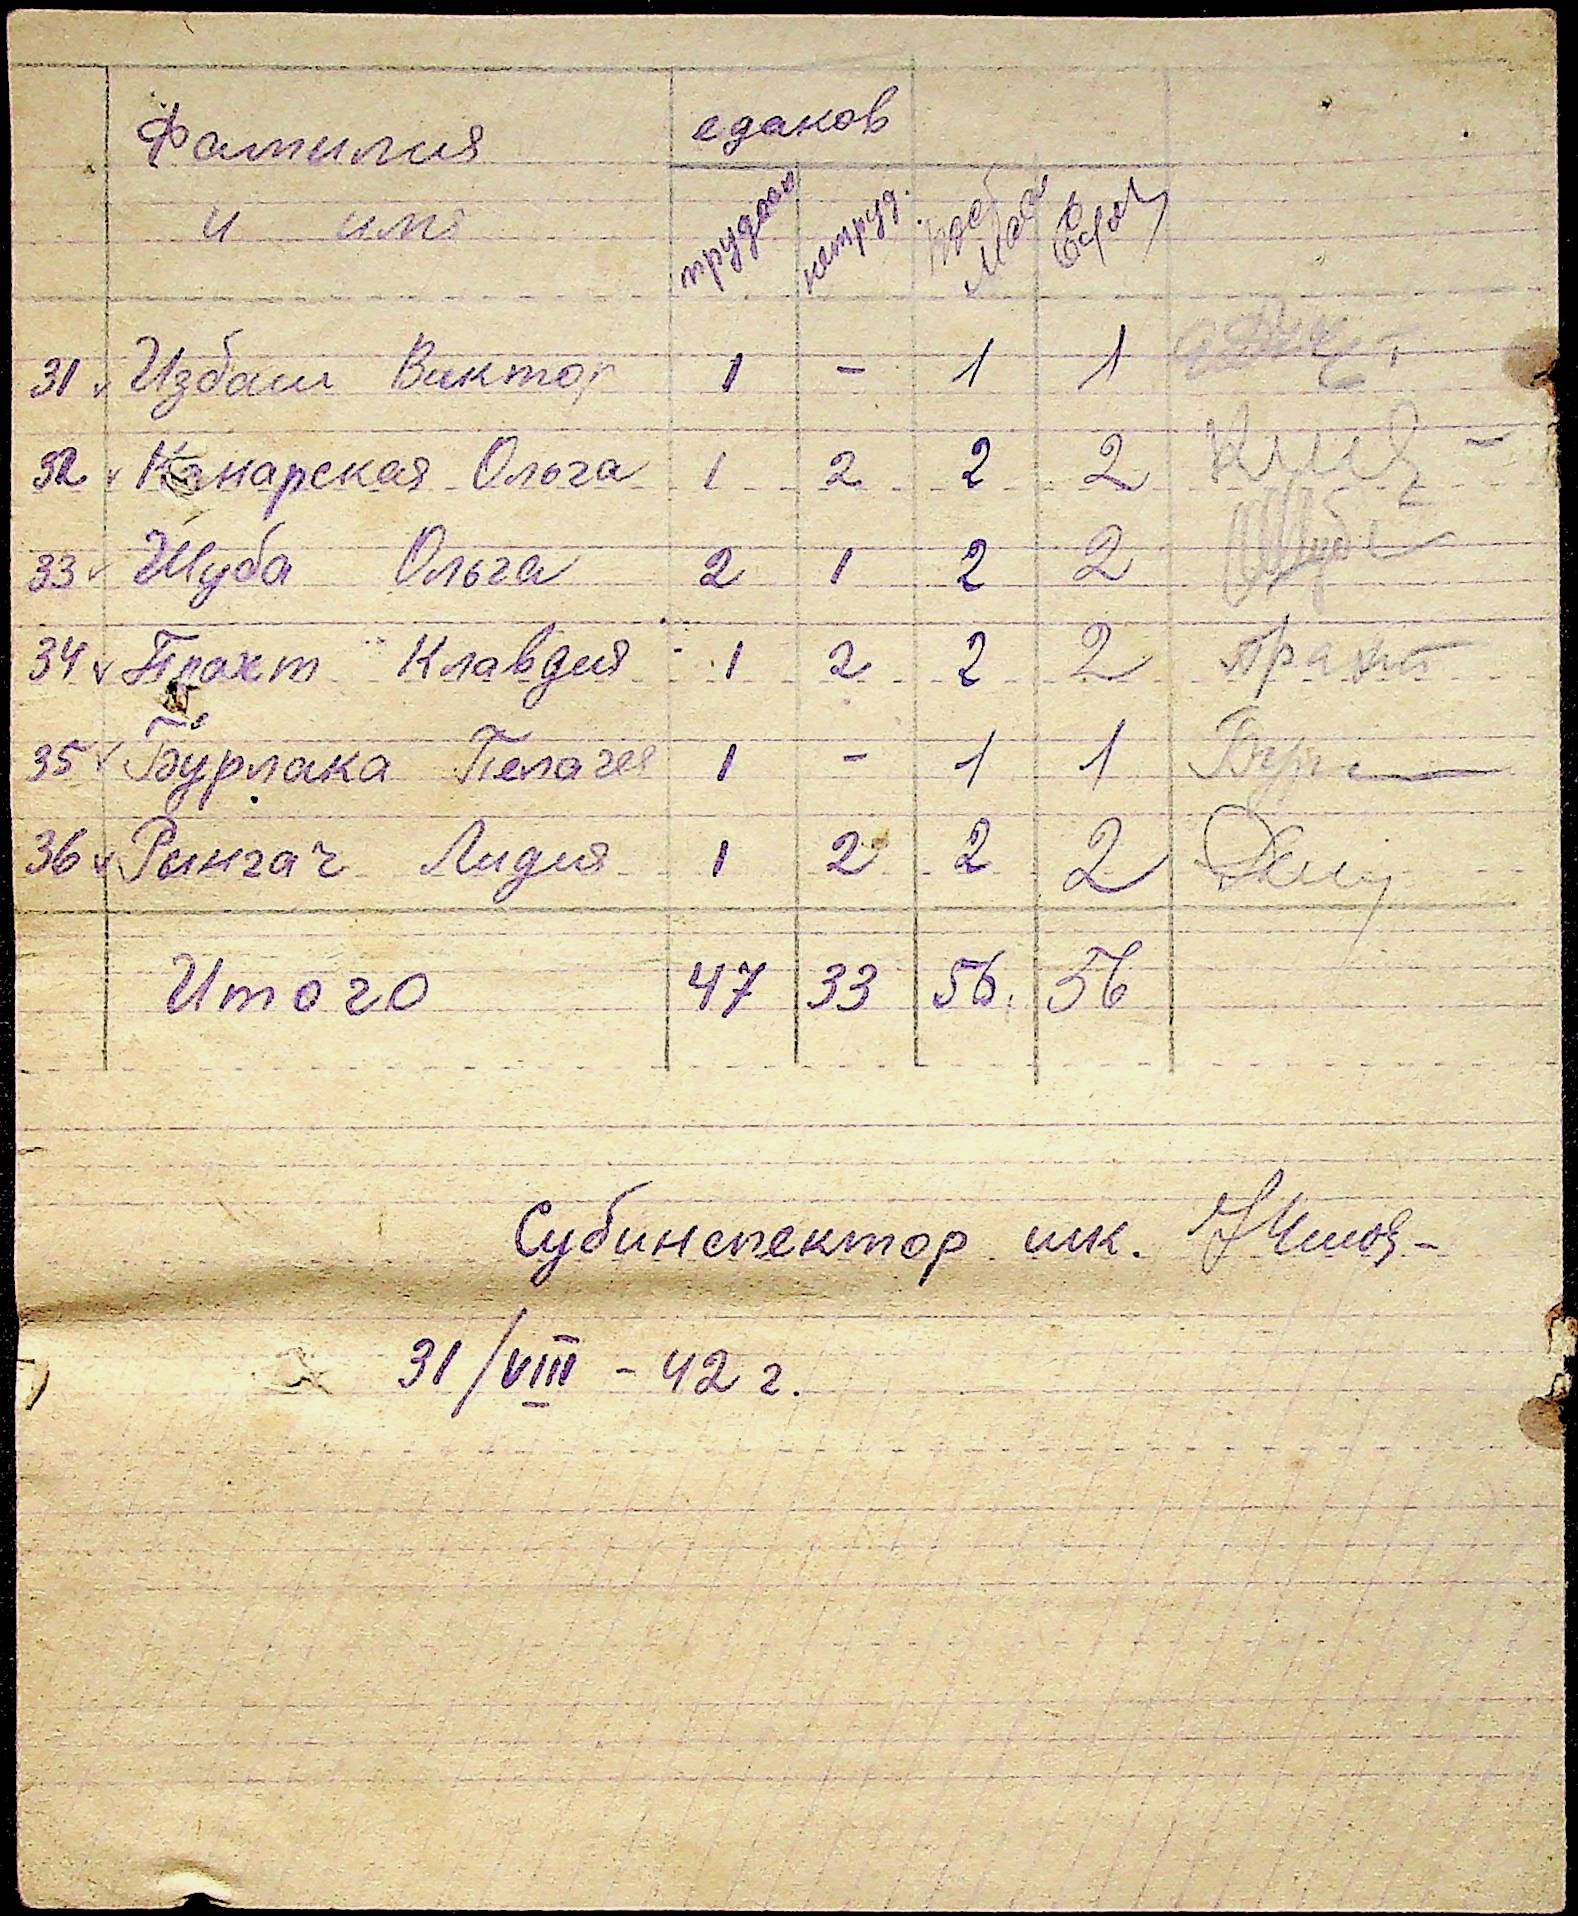 Фамилия едаков
и имя
трудосп нетруд.
31 Избаш Виктор 1 - 1 1
32 Канарская Ольга 1 2 2 2
33 Шуба Ольга 2 1 2 2 Шуба
34 Прахт Клавдия 1 2 2 2 Прахт
35 Бурлака Пелагея 1 - 1 1 Бур
36 Рынгач Лидия 1 2 2 2
Итого 47 33 56. 56
Субинспектор шк.
31/VIII - 42 г.